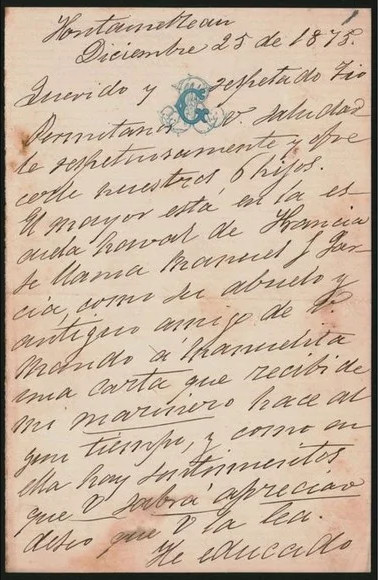 Fontainebleau
Diciembre 25 de 1875.
Querido y respetado Tio
Permitanos V. saludar
le respetuosamente y ofre
cerle nuestros 6 hijos.
El mayor está en la es
cuela naval de Francia
se llama Manuel J Gar-
cia, como su abuelo y
antiguo amigo de V.
Mando á Manuelita
una carta que recibi de
mi marinero hace al
gun tiempo, y como en
ella hay sentimientos
que V sabrá apreciar
deseo que V la lea.
He educado